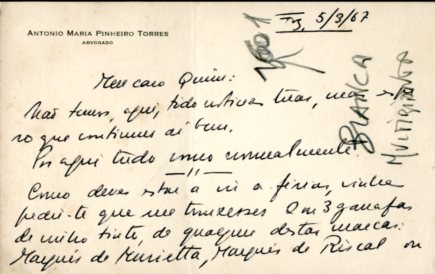 ANTONIO MARIA PINHEIRO TORRES
ADVOGADO
5/3/67
1601
BIANCA
Meu caro Quim:
Não temos, aqui, tido notícias tuas, mas
ro que continues aí bem.
Por aqui tudo como normalmente.
Como deves estar a vir a férias, vinha
pedir-te que me trouxesses 2 ou 3 garrafas
de vinho tinto, de qualquer destas marcas:
Marqués de Murietta, Marqués de Riscal ou